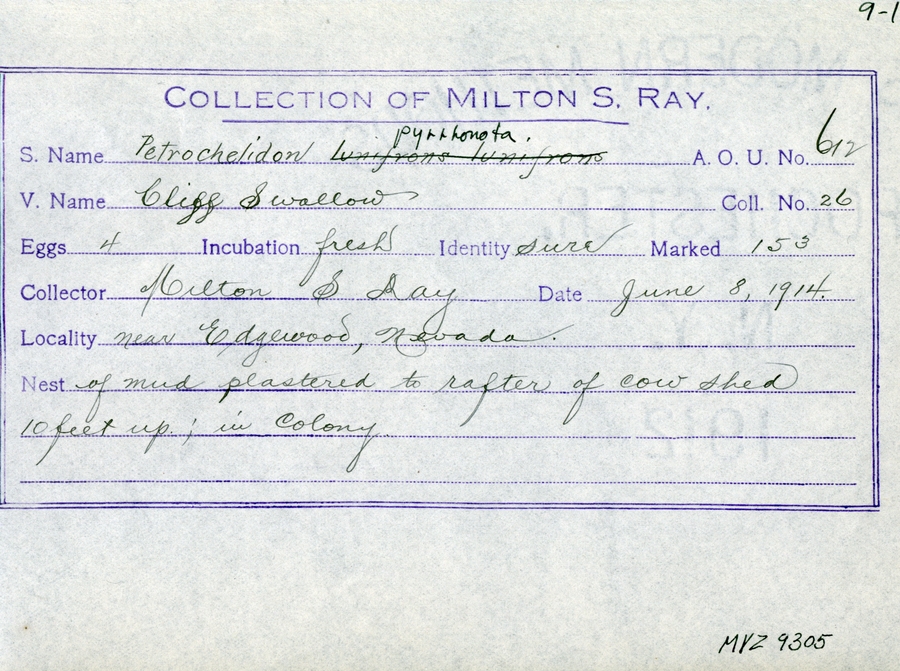 9-1
COLLECTION OF MILTON S. RAY.
pyrrhonota.
S. Name Petrochelidon lunifrons lunifrons A. O. U. No. 612
V. Name Cliff Swallow Coll. No. 26
Eggs 4 Incubation fresh Identity sure Marked 153
Collector Milton S Ray Date June 8, 1914.
Locality near Edgewood, Nevada.
Nest of mud plastered to rafter of cow shed
10 feet up; in colony
MVZ 9305